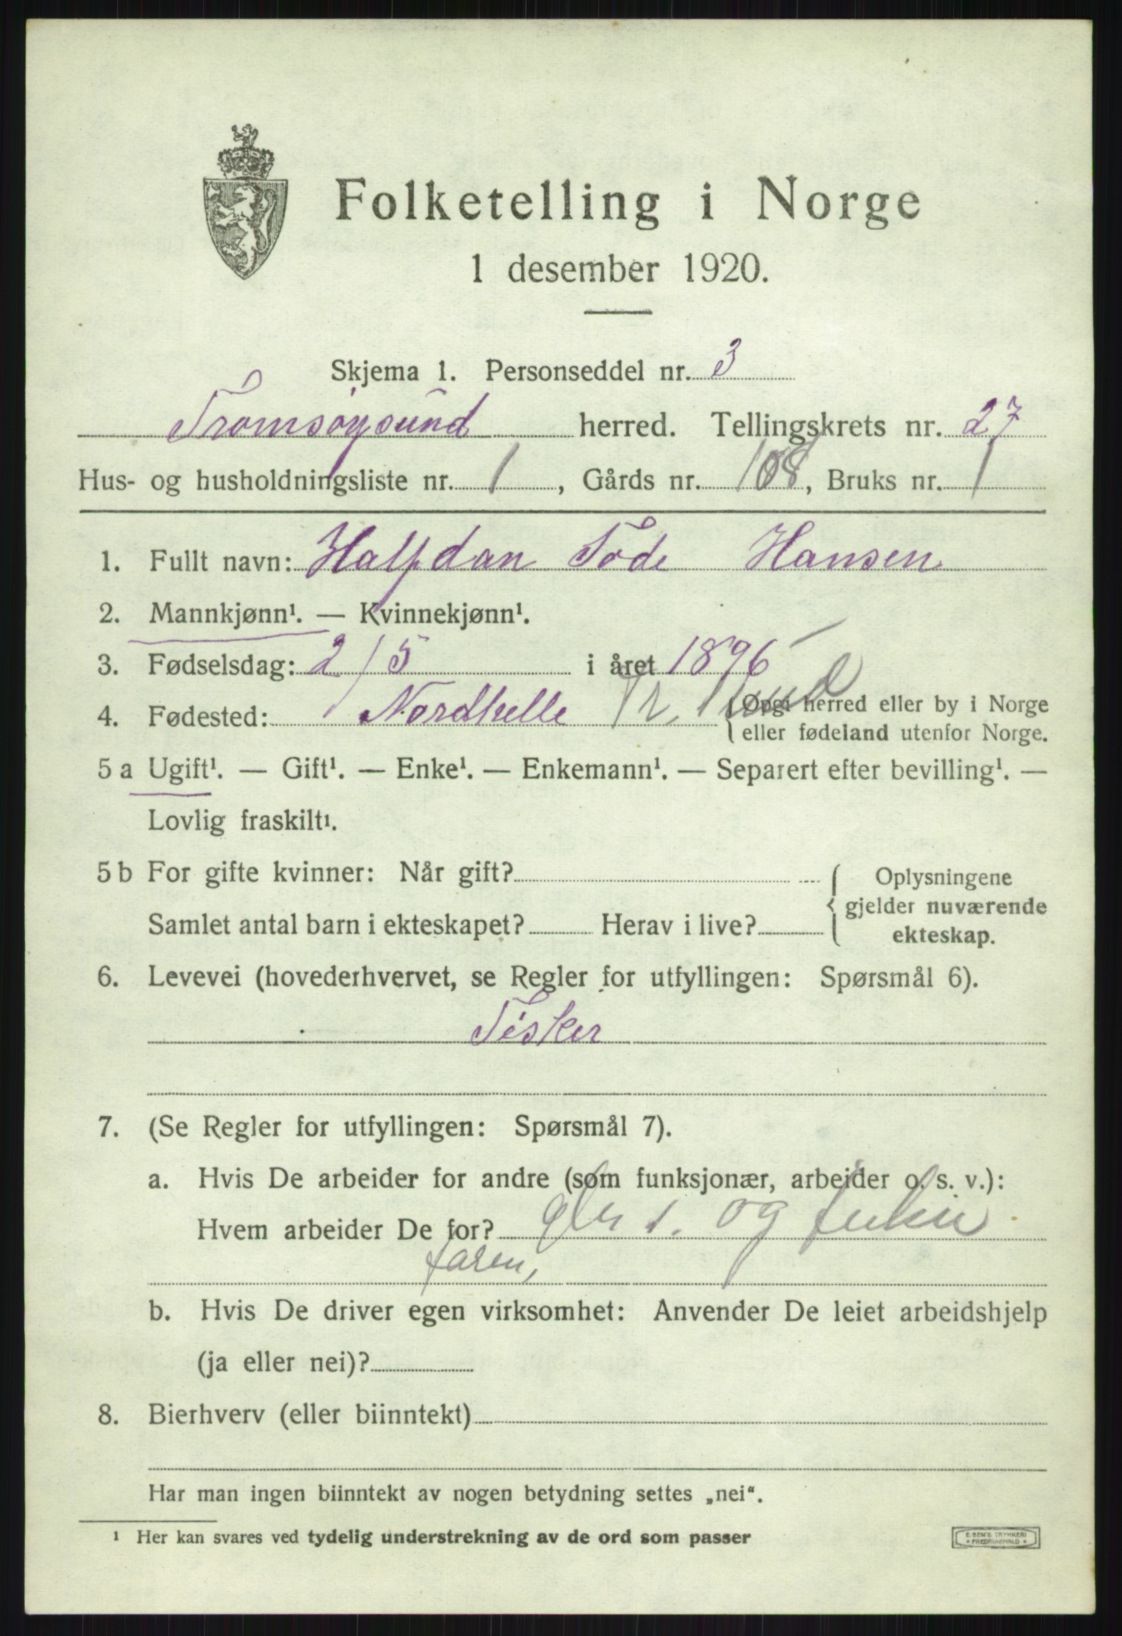 Folketelling i Norge
1 desember 1920.
Skjema 1. Personseddel nr. 3
Tromsøysund herred. Tellingskrets nr. 27
Hus- og husholdningsliste nr. 1, Gårds nr. 108, Bruks nr. 1
1. Fullt navn: Halfdan Tode Hansen
2. Mannkjønn¹. — Kvinnekjønn¹.
3. Fødselsdag: 2/5 i året 1896
4. Fødested: Nordhelle Tr. sund {Opgi herred eller by i Norge
eller fødeland utenfor Norge.
5 a Ugift¹. — Gift¹. — Enke¹. — Enkemann¹. — Separert efter bevilling¹. —
Lovlig fraskilt¹.
5 b For gifte kvinner: Når gift? { Oplysningene
gjelder nuværende
Samlet antal barn i ekteskapet? Herav i live?
ekteskap.
6. Levevei (hovederhvervet, se Regler for utfyllingen: Spørsmål 6).
Fisker
7. (Se Regler for utfyllingen: Spørsmål 7).
a. Hvis De arbeider for andre (som funksjonær, arbeider o. s. v.):
Hvem arbeider De for? s. og
faren,
b. Hvis De driver egen virksomhet: Anvender De leiet arbeidshjelp
(ja eller nei)?
8. Bierhverv (eller biinntekt)
Har man ingen biinntekt av nogen betydning settes „nei“.
¹ Her kan svares ved tydelig understrekning av de ord som passer